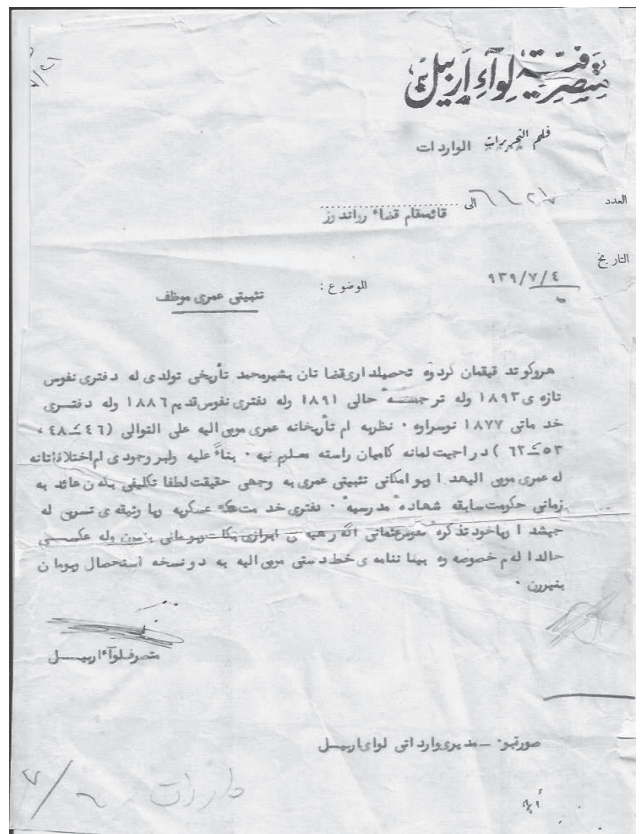 متصرفية لواء اربيل
قلم التحريرات الواردات
العدد ٦٦٢٧ الى قائممقام قضاء رواندوز
التاريخ ٩٣٩/٧/٤
الموضوع : تثبيتى عمرى موظف
هروكو تد قيقمان كردوه تحصيلدارى قضا تان بشيرمحمد تأريخى تولدى له دفترى نفوس
تازه ى ١٨٩٣ وله ترجمه حالى ١٨٩١ وله دفترى نفوس قديم ١٨٨٦ وله دفترى
خد ماتى ١٨٧٧ نوسراوه ٠ نظريه ام تأريخانه عمرى مومى اليه على التوالى (٤٦ ـ ٤٨ ،
٥٣ ـ ٦٢ ) دراجيت لمانه كاميان راسته معلوم نيه ٠ بناءً عليه ولبر وجودى ام اختلافاتانه
له عمرى مومى اليهدا وبو امكانى تثبيتى عمرى به وجهى حقيقت لطفا تكليفى بكەن عائد به
زمانى حكومت سابقه شهاده مدرسيه ٠ دفترى خد مت عسكريه ويا وثيقه ى تسرى له
جيشدا وياخود تذكره نفوس عثمانى اگه رهيه ى ابرازى بكات وبومانى بنيرن وله عكسى
حالدا لەم خصوصه وه بيما ننامه ى خط دستى مومى اليه به دو نسخه استحصال وبومان
بنيرن ٠
متصرف لواء اربيل
صورتبو ـ مديرى وارداتى لواى اربيل
واردات